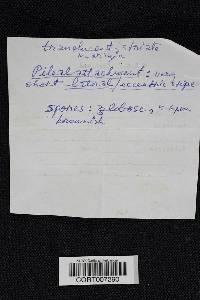 translucent, striate
margin
Pileal attachment: very
short lateral/eccentric stipe
spores: globose, 5-6 µm
brownish
CORT007260